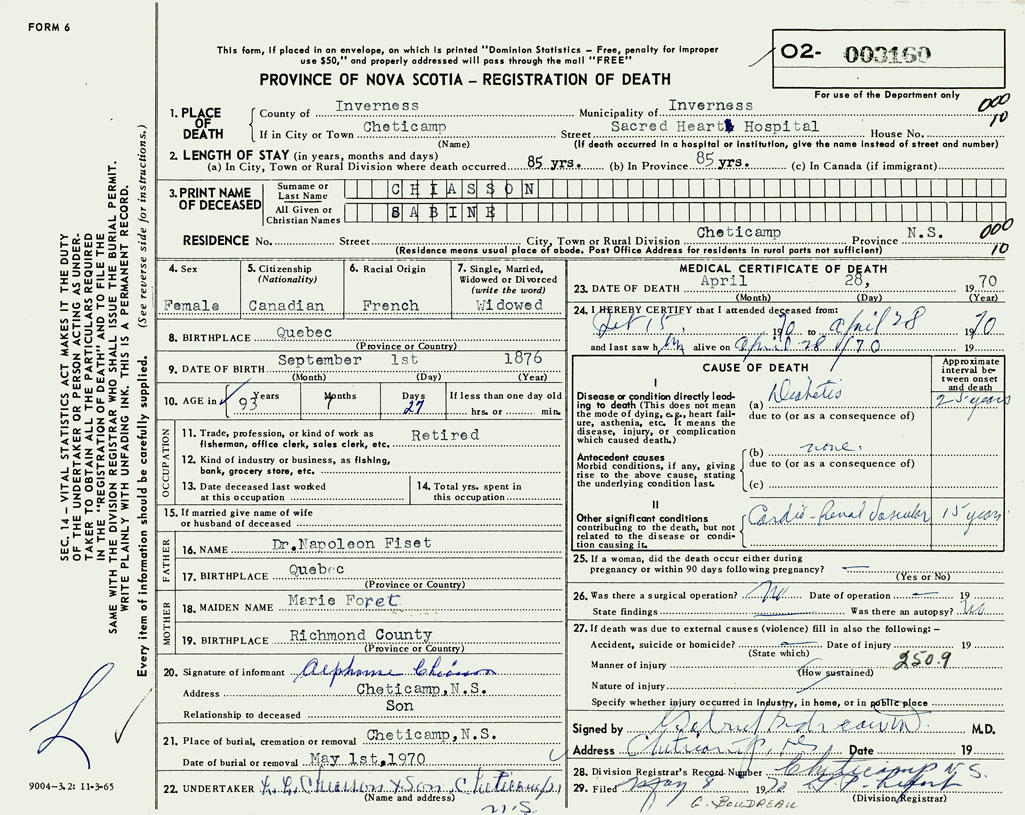 FORM 6
This form, if placed in an envelope, on which is printed "Dominion Statistics – Free, penalty for improper
use $50," and properly addressed will pass through the mail "FREE"
PROVINCE OF NOVA SCOTIA – REGISTRATION OF DEATH
02- 003160
For use of the Department only
000
10
1. PLACE OF DEATH
County of Inverness Municipality of Inverness
If in City or Town Cheticamp Street Sacred Heart Hospital House No.
(Name) (If death occurred in a hospital or institution, give the name instead of street and number)
2. LENGTH OF STAY (in years, months and days)
(a) In City, Town or Rural Division where death occurred 85 yrs. (b) In Province 85 yrs. (c) In Canada (if immigrant)
3. PRINT NAME OF DECEASED
Surname or Last Name CHIASSON
All Given or Christian Names SABINE
RESIDENCE No. Street City, Town or Rural Division Cheticamp Province N.S.
(Residence means usual place of abode. Post Office Address for residents in rural parts not sufficient)
000
10
4. Sex
Female
5. Citizenship
(Nationality)
Canadian
6. Racial Origin
French
7. Single, Married,
Widowed or Divorced
(write the word)
Widowed
8. BIRTHPLACE Quebec
(Province or Country)
9. DATE OF BIRTH September 1st 1876
(Month) (Day) (Year)
10. AGE in Years Months Days If less than one day old
93 7 27 hrs. or min.
OCCUPATION
11. Trade, profession, or kind of work as
fisherman, office clerk, sales clerk, etc. Retired
12. Kind of industry or business, as fishing,
bank, grocery store, etc.
13. Date deceased last worked
at this occupation
14. Total yrs. spent in
this occupation
15. If married give name of wife
or husband of deceased
FATHER
16. NAME Dr. Napoleon Fiset
17. BIRTHPLACE Quebec
(Province or Country)
MOTHER
18. MAIDEN NAME Marie Foret
19. BIRTHPLACE Richmond County
(Province or Country)
20. Signature of informant Alphonse Chiasson
Address Cheticamp, N.S.
Relationship to deceased Son
21. Place of burial, cremation or removal Cheticamp, N.S.
Date of burial or removal May 1st, 1970
22. UNDERTAKER L. L. Chiasson & Son, Cheticamp,
(Name and address) N.S.
MEDICAL CERTIFICATE OF DEATH
23. DATE OF DEATH April 28, 1970
(Month) (Day) (Year)
24. I HEREBY CERTIFY that I attended deceased from:
15, 1970 to April 28 1970
and last saw h alive on April 28 / 70 19
CAUSE OF DEATH
Approximate
interval be-
tween onset
and death
I
Disease or condition directly lead-
ing to death (This does not mean
the mode of dying, e.g., heart fail-
ure, asthenia, etc. It means the
disease, injury, or complication
which caused death.)
(a) Diabetis 25 years
due to (or as a consequence of)
Antecedent causes
Morbid conditions, if any, giving
rise to the above cause, stating
the underlying condition last.
(b) none.
due to (or as a consequence of)
(c)
II
Other significant conditions
contributing to the death, but not
related to the disease or condi-
tion causing it.
Cardio-Renal Vascular 15 years
25. If a woman, did the death occur either during
pregnancy or within 90 days following pregnancy? –
(Yes or No)
26. Was there a surgical operation? No Date of operation – 19
State findings Was there an autopsy? No
27. If death was due to external causes (violence) fill in also the following:–
Accident, suicide or homicide? Date of injury 19
(State which)
Manner of injury 250.9
(How sustained)
Nature of injury
Specify whether injury occurred in Industry, in home, or in public place
Signed by M.D.
Address Cheticamp, NS Date 19
28. Division Registrar's Record Number Cheticamp N.S.
29. Filed May 8 1970
(Division Registrar)
G. BOUDREAU
SEC. 14 – VITAL STATISTICS ACT MAKES IT THE DUTY
OF THE UNDERTAKER OR PERSON ACTING AS UNDER-
TAKER TO OBTAIN ALL THE PARTICULARS REQUIRED
IN THE "REGISTRATION OF DEATH" AND TO FILE THE
SAME WITH THE DIVISION REGISTRAR WHO SHALL ISSUE THE BURIAL PERMIT.
WRITE PLAINLY WITH UNFADING INK. THIS IS A PERMANENT RECORD.
Every item of information should be carefully supplied. (See reverse side for instructions.)
9004-3.2: 11-3-65